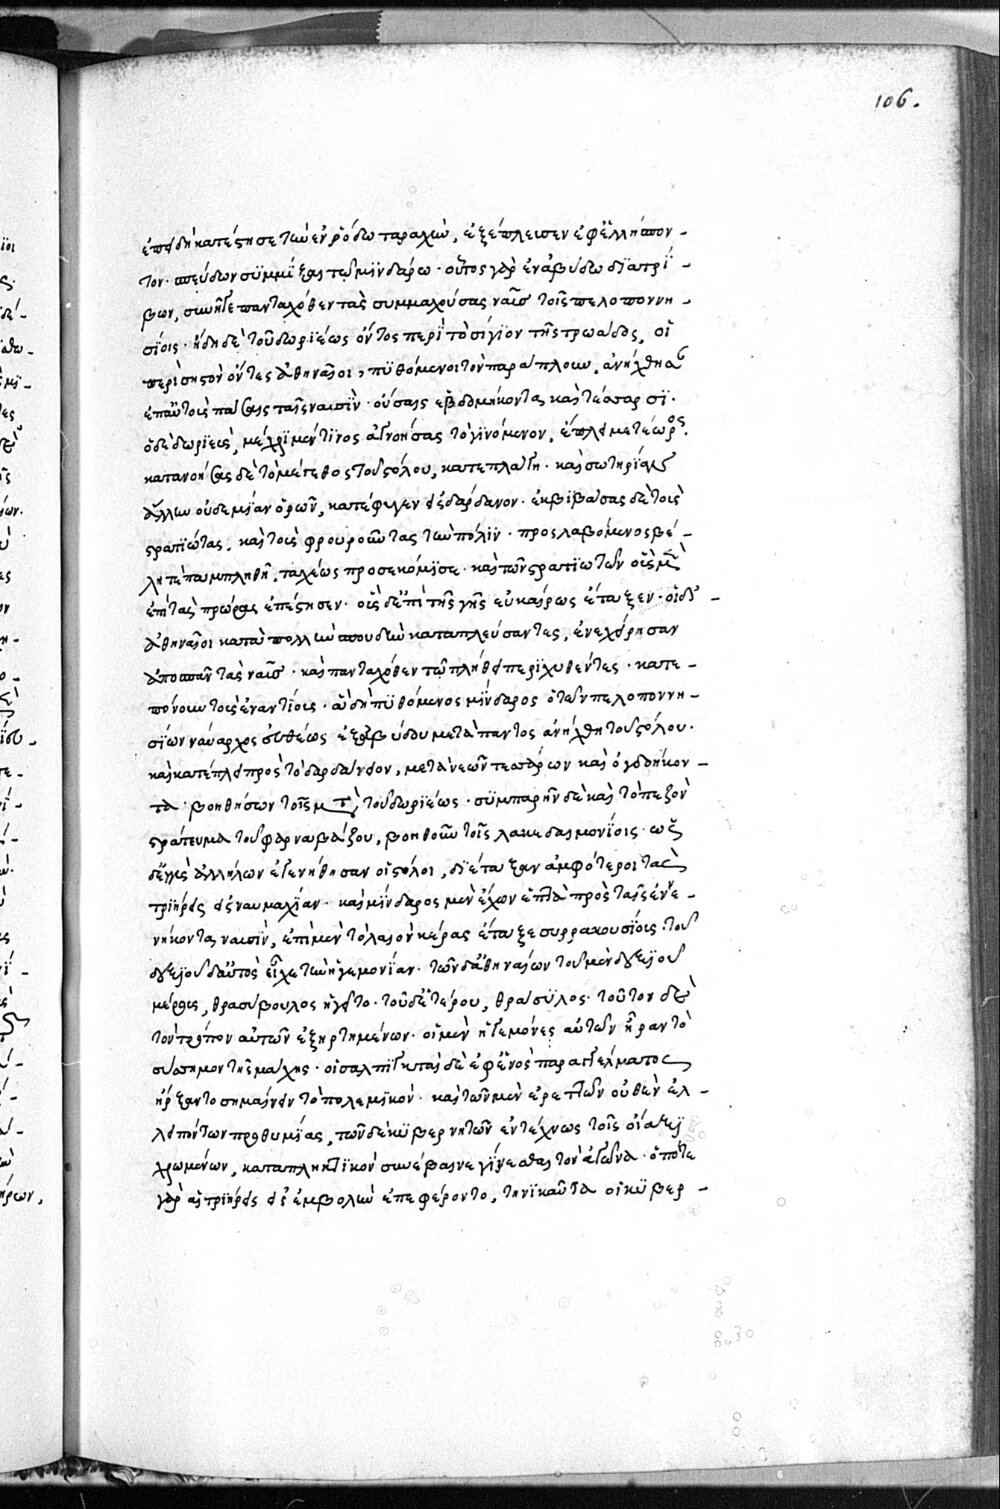 ἐπειδὴ κατέστησε τὴν ἐν ῥόδω ταραχὴν, ἐξέπλευσεν ἐφ' ἑλλήσπον-
τον· σπεύδων συμμίξαι τῶ μινδάρω· οὗτος γὰρ ἐν ἀβύδω διατρί-
βων, συνῆγε πανταχόθεν τὰς συμμαχούσας ναῦς τοῖς πελοποννη-
σίοις· ἤδη δὲ τοῦ δωριέως ὄντος περὶ τὸ σίγιον τῆς τρωάδος, οἱ
περὶ σηστὸν ὄντες ἀθηναῖοι, πυθόμενοι τὸν παράπλουν, ἀνήχθησαν
ἐπ' αὐτοὺς πάσαις ταῖς ναυσὶν· οὔσαις ἑβδομήκοντα καὶ τέσσαρσι.
ὁ δὲ δωριεὺς, μέχρι μέν τινος ἀγνοήσας τὸ γινόμενον, ἔπλει μετέωρος.
κατανοήσας δὲ τὸ μέγεθος τοῦ στόλου, κατεπλάγη· καὶ σωτηρίαν
ἄλλην οὐδεμίαν ὁρῶν, κατέφυγεν εἰς δάρδανον· ἐκβιβάσας δὲ τοὺς
στρατιώτας, καὶ τοὺς φρουροῦντας τὴν πόλιν· προσλαβόμενος βέ-
λη τε παμπληθῆ, ταχέως προσεκόμισε· καὶ τῶν στρατιωτῶν οὓς μὲν
ἐπὶ τὰς πρώρας ἐπέστησεν· οὓς δ' ἐπὶ τῆς γῆς εὐκαίρως ἔταξεν· οἱ δ' -
ἀθηναῖοι κατὰ πολλὴν σπουδὴν καταπλεύσαντες, ἐνεχείρησαν
ἀποσπᾶν τὰς ναῦς· καὶ πανταχόθεν τῶ πλήθει περιχυθέντες· κατε-
πόνουν τοὺς ἐναντίους· ἃ δὴ πυθόμενος μίνδαρος ὁ τῶν πελοποννη-
σίων ναύαρχος εὐθέως ἐξ ἀβύδου μετὰ παντὸς ἀνήχθη τοῦ στόλου·
καὶ κατέπλει πρὸς τὸ δαρδάνειον, μετὰ νεῶν τεσσάρων καὶ ὀγδοήκον-
τα· βοηθήσων τοῖς μετὰ τοῦ δωριέως· συμπαρῆν δὲ καὶ τὸ πεζὸν
στράτευμα τοῦ φαρναβάζου, βοηθοῦν τοῖς λακεδαιμονίοις· ὡς
δ' ἐγγὺς ἀλλήλων ἐγενήθησαν οἱ στόλοι, διέταξαν ἀμφότεροι τὰς
τριήρεις εἰς ναυμαχίαν· καὶ μίνδαρος μὲν ἔχων ἑπτὰ πρὸς ταῖς ἐνε-
νήκοντα ναυσὶν, ἐπὶ μὲν τὸ λαιὸν κέρας ἔταξε συρρακουσίους· τοῦ
δεξιοῦ δ' αὐτὸς εἶχε τὴν ἡγεμονίαν· τῶν δ' ἀθηναίων τοῦ μὲν δεξιοῦ
μέρους, θρασύβουλος ἡγεῖτο· τοῦ δ' ἑτέρου, θράσυλος· τοῦτον δὲ
τὸν τρόπον αὐτῶν ἐξηρτημένων· οἱ μὲν ἡγεμόνες αὐτῶν ἦραν τὸ
σύσσημον τῆς μάχης· οἱ σαλπιγκταὶ δὲ ἀφ' ἑνὸς παραγγέλματος
ἤρξαντο σημαίνειν τὸ πολεμικόν· καὶ τῶν μὲν ἐρετῶν οὐθὲν ἐλ-
λειπόντων προθυμίας, τῶν δὲ κυβερνητῶν ἐντέχνως τοῖς οἴαξι
χρωμένων, καταπληκτικὸν συνέβαινε γίνεσθαι τὸν ἀγῶνα· ὁπότε
γὰρ αἱ τριήρεις εἰς ἐμβολὴν ἐπεφέροντο, τηνικαῦτα οἱ κυβερ-
106.